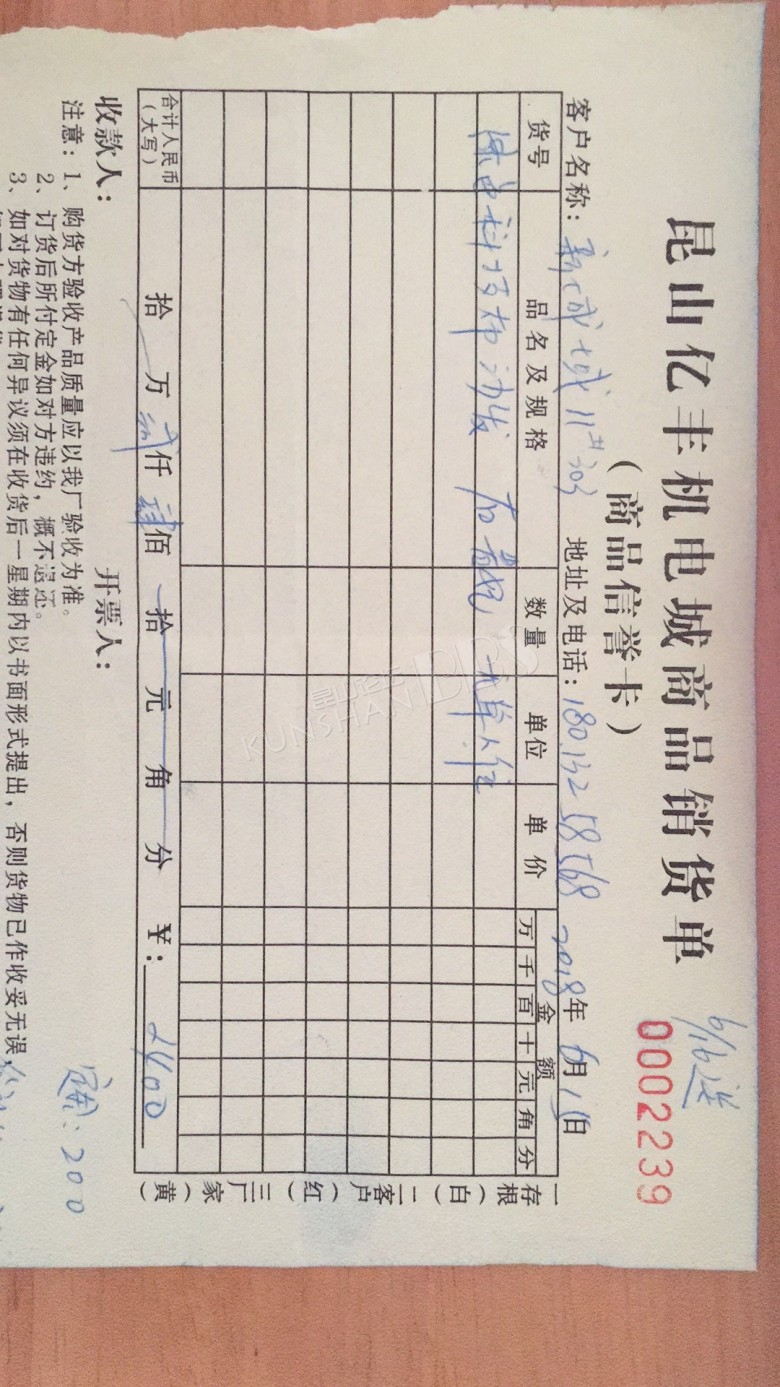 昆山亿丰机电城商品销货单
(商品信誉卡)
6/16送
0002239
客户名称:新城 域 11# 303 地址及电话:180132 58568 2018年6月15日
货号 品名及规格 数量 单位 单价 金额
万 千 百 十 元 角 分
科技布沙发 右 单人位
合计人民币(大写) 拾 万 贰仟 肆佰 拾 元 角 分 ¥:2400
一存根(白) 二客户(红) 三厂家(黄)
收款人: 开票人: 定金:200
注意:1、购货方验收产品质量应以我厂验收为准。
2、订货后所付定金如对方违约,概不退还。
3、如对货物有任何异议须在收货后一星期内以书面形式提出,否则货物已作收妥无误,
KUNSHAN BBS